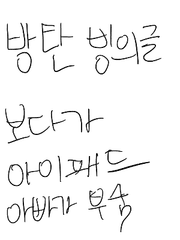 방탄 빙의글
보다가
아이패드
아빠가 부숨